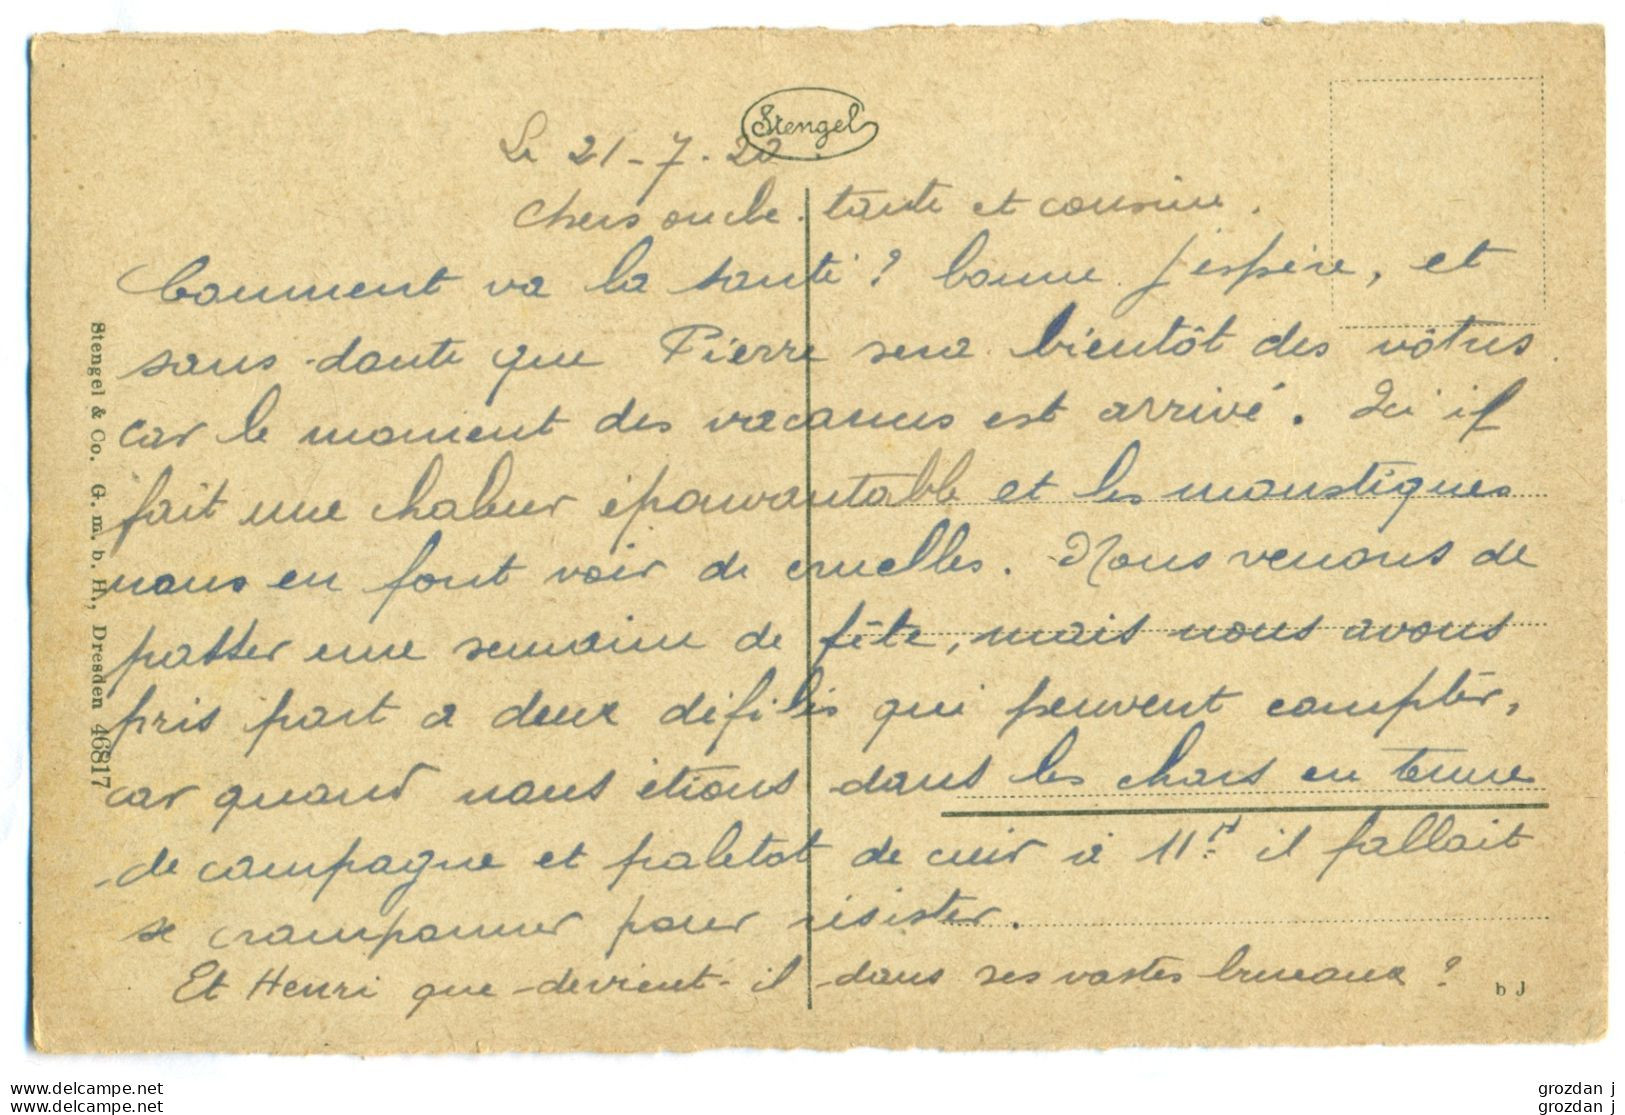 Stengel
Le 21-7-20.
Chers oncle. tante et cousine.
Comment va la santé? bonne j'espère, et
sans doute que Pierre sera bientôt des vôtres
car le moment des vacances est arrivé. Ici il
fait une chaleur épouvantable et les moustiques
nous en font voir de cruelles. Nous venons de
passer une semaine de fête, mais nous avons
pris part a deux défilés qui peuvent compter,
car quand nous étions dans les chars en tenue
de campagne et paletot de cuir à 11H il fallait
se cramponner pour résister.
Et Henri que devient-il dans ses vastes bureaux?
b J
Stengel & Co. G. m. b. H., Dresden 46817
www.delcampe.net
www.delcampe.net
grozdan j
grozdan j